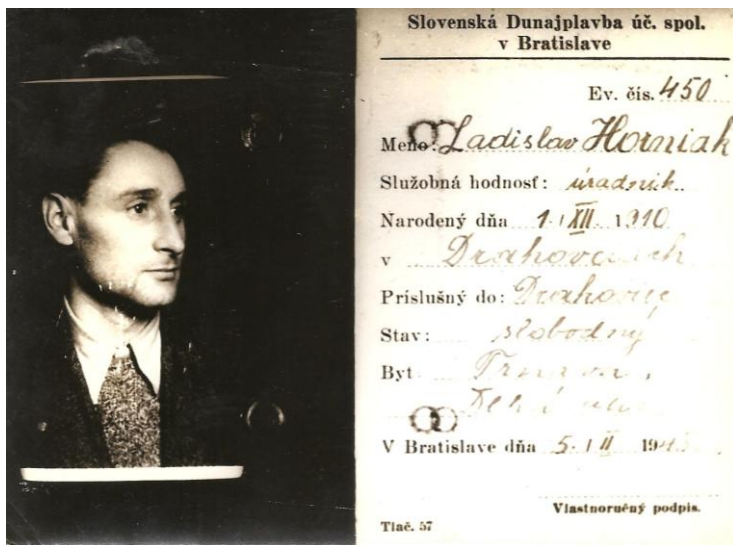 Slovenská Dunajplavba úč. spol.
v Bratislave
Ev. čís. 450
Meno: Ladislav Horniak
Služobná hodnosť: úradník
Narodený dňa 1. XII. 1910
v Drahovciach
Príslušný do: Drahovce
Stav: slobodný
Byt: Trnava,
V Bratislave dňa 5. II 194
Vlastnoručný podpis.
Tlač. 57